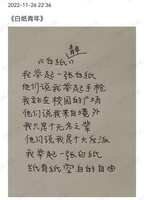 2022-11-26 22:36
《白纸青年》
《白纸》青年
我举起一张白纸
他们说我举起手枪
我站在校园的广场
他们说我来自境外
我只是个无名之辈
他们说我是个大反派
我举起一张白纸
纸有纸空白的自由